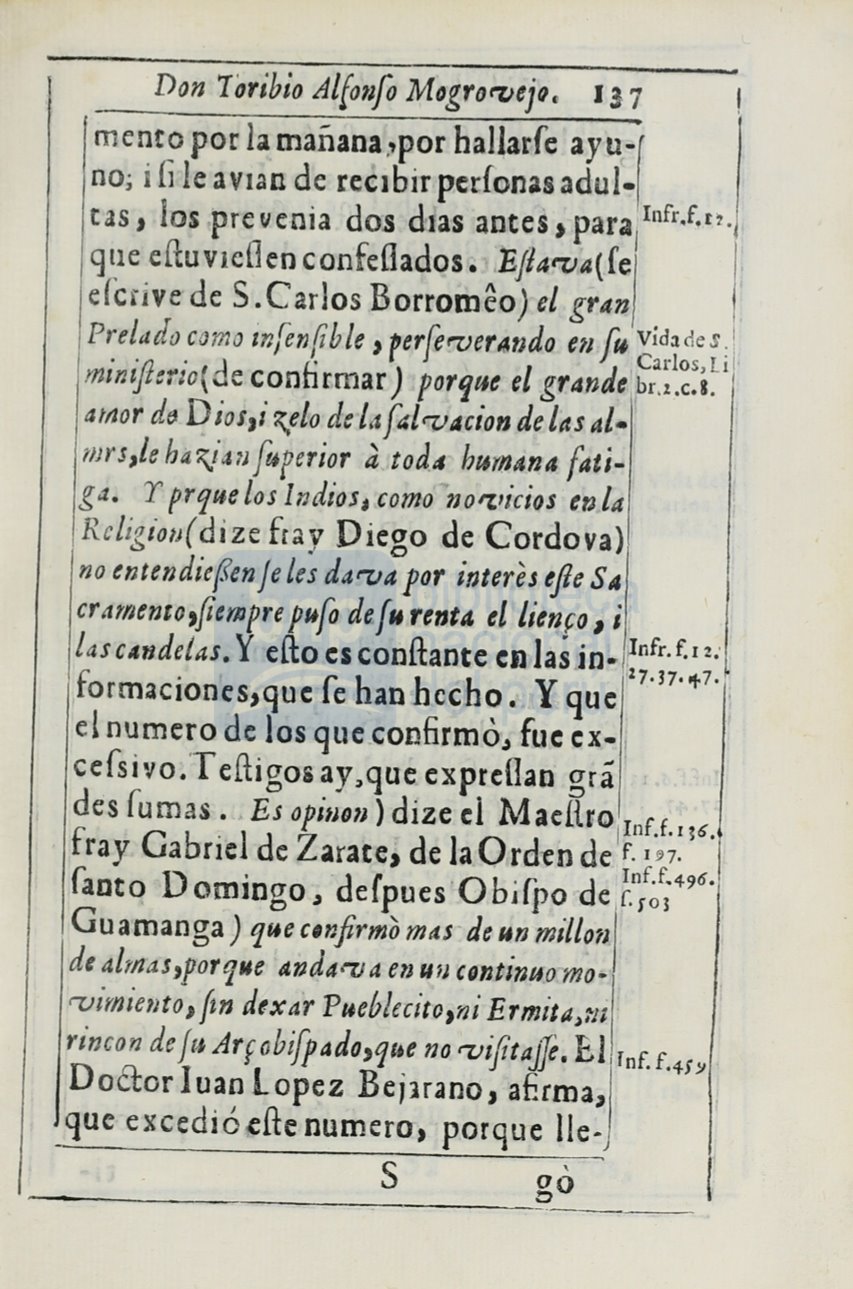 Don Toribio Alfonſo Mogrovejo. 137
mento por la mañana, por hallarſe ayu-
no; i ſi le avian de recibir perſonas adul-
tas, los prevenia dos dias antes, para
Infr.f.12.
que eſtuvieſſen confeſſados. Eſtava (ſe
eſcrive de S. Carlos Borromêo) el gran
Prelado como inſenſible, perſeverando en ſu
Vida de S.
Carlos, Li
br.2.c.8.
miniſterio (de confirmar) porque el grande
amor de Dios, i zelo de la ſalvacion de las al-
mrs, le hazian ſuperior à toda humana fati-
ga. Y prque los Indios, como novicios en la
Religion (dize fray Diego de Cordova)
no entendießen ſe les dava por interès eſte Sa
cramento, ſiempre puſo de ſu renta el lienço, i
las candelas. Y eſto es conſtante en las in-
Infr. f. 12.
27. 37. 47.
formaciones, que ſe han hecho. Y que
el numero de los que confirmò, fue ex-
ceſsivo. Teſtigos ay, que expreſſan grã
des ſumas. Es opinon) dize el Maeſtro
Inf.f.136.
f. 197.
fray Gabriel de Zarate, de la Orden de
ſanto Domingo, deſpues Obiſpo de
Inf.f.496.
f.503
Guamanga) que confirmò mas de un millon
de almas, porque andava en un continuo mo-
vimiento, ſin dexar Pueblecito, ni Ermita, ni
rincon de ſu Arçobiſpado, que no viſitaſſe. El
Inf. f.459
Doctor Iuan Lopez Bejarano, afirma,
que excedió eſte numero, porque lle-
S gò